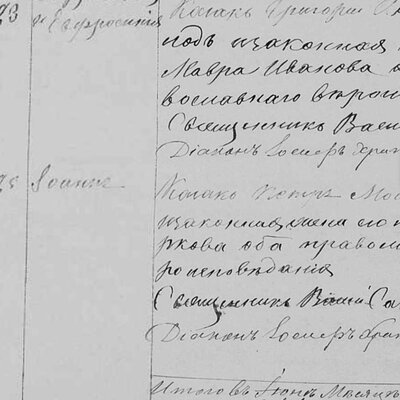 23
и Евфросинія
Козакъ Григорій
подъ изаконная
Мавра Иванова
вославнаго втрои
Священникъ Васи
Діаконъ Іосифъ Хри
25 Іоаннъ
Козакъ
изаконная жена его
ркова оба правосл
роисповѣданія
Священникъ Васил
Діаконъ Іосифъ Хри
Итого въ Іюнѣ Мѣсяцѣ